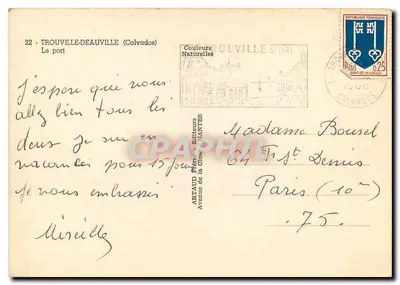 22 - TROUVILLE-DEAUVILLE (Calvados)
Le port
Couleurs
Naturelles
TROUVILLE s/Mer
REPUBLIQUE FRANCAISE
0,25
1966
CALVADOS
J'espère que vous
allez bien tous les
deux je suis en
vacances pour 15 jours
Je vous embrasse
Mireille
ARTAUD Père Editeurs
Avenue de la Close NANTES
Madame Boursel
64 Fg St Denis
Paris (10e)
.75.